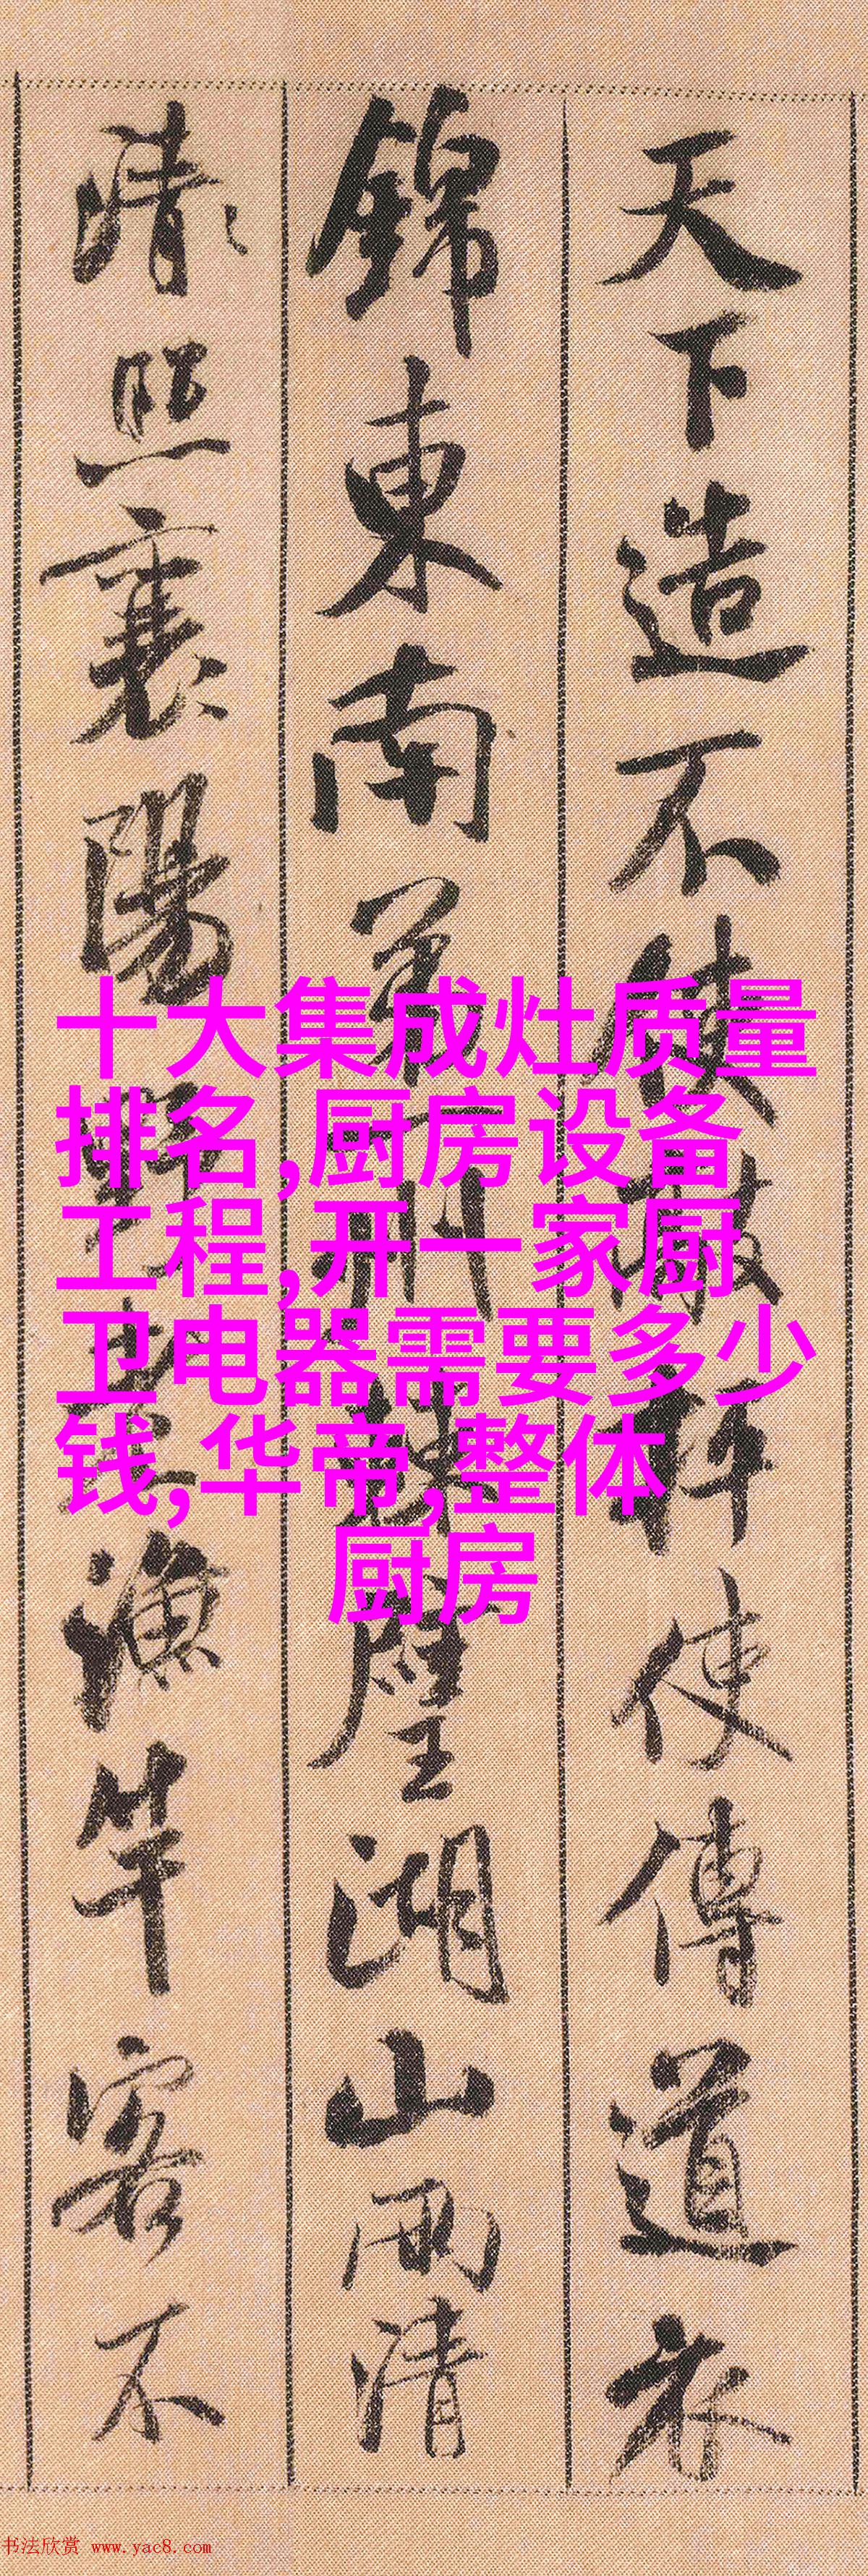 天下造不使敝科使傳道衣
錦東南第一州棘璧湖山兩清
清照襄陽野老漁竿客不
十大集成灶质量
排名,厨房设备
工程,开一家厨
卫电器需要多少
钱,华帝,整体
厨房
书法欣赏 www.yac8.com